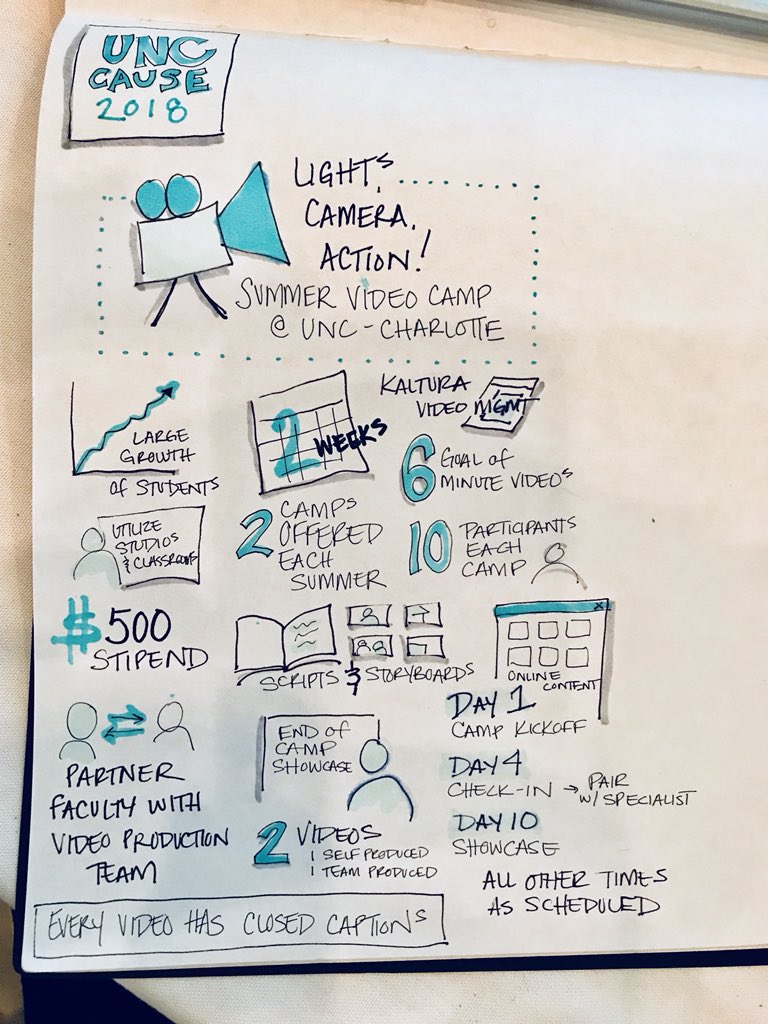 UNC
CAUSE
2018
LIGHTS,
CAMERA,
ACTION!
SUMMER VIDEO CAMP
@ UNC-CHARLOTTE
LARGE
GROWTH
of STUDENTS
2 WEEKS
KALTURA
VIDEO MGMT
6 GOAL of
MINUTE VIDEOS
UTILIZE
STUDIOS
& CLASSROOMS
2 CAMPS
OFFERED
EACH
SUMMER
10 PARTICIPANTS
EACH
CAMP
$500
STIPEND
SCRIPTS & STORYBOARDS
X
ONLINE
CONTENT
PARTNER
FACULTY WITH
VIDEO PRODUCTION
TEAM
END OF
CAMP
SHOWCASE
2 VIDEOS
1 SELF PRODUCED
1 TEAM PRODUCED
DAY 1
CAMP KICKOFF
DAY 4
CHECK-IN → PAIR
W/ SPECIALIST
DAY 10
SHOWCASE
ALL OTHER TIMES
AS SCHEDULED
EVERY VIDEO HAS CLOSED CAPTIONS